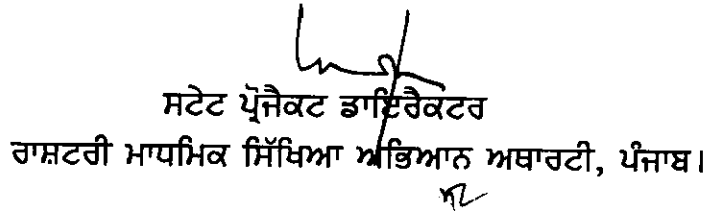 ਸਟੇਟ ਪ੍ਰੋਜੈਕਟ ਡਾਇਰੈਕਟਰ
ਰਾਸ਼ਟਰੀ ਮਾਧਮਿਕ ਸਿੱਖਿਆ ਅਭਿਆਨ ਅਥਾਰਟੀ, ਪੰਜਾਬ।